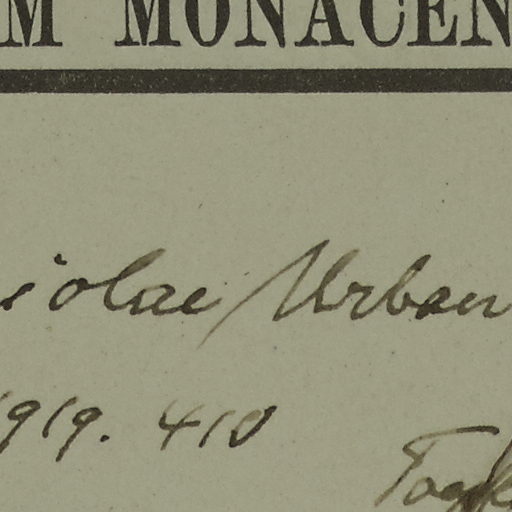 M MONACEN
iolae Urban
1919. 410